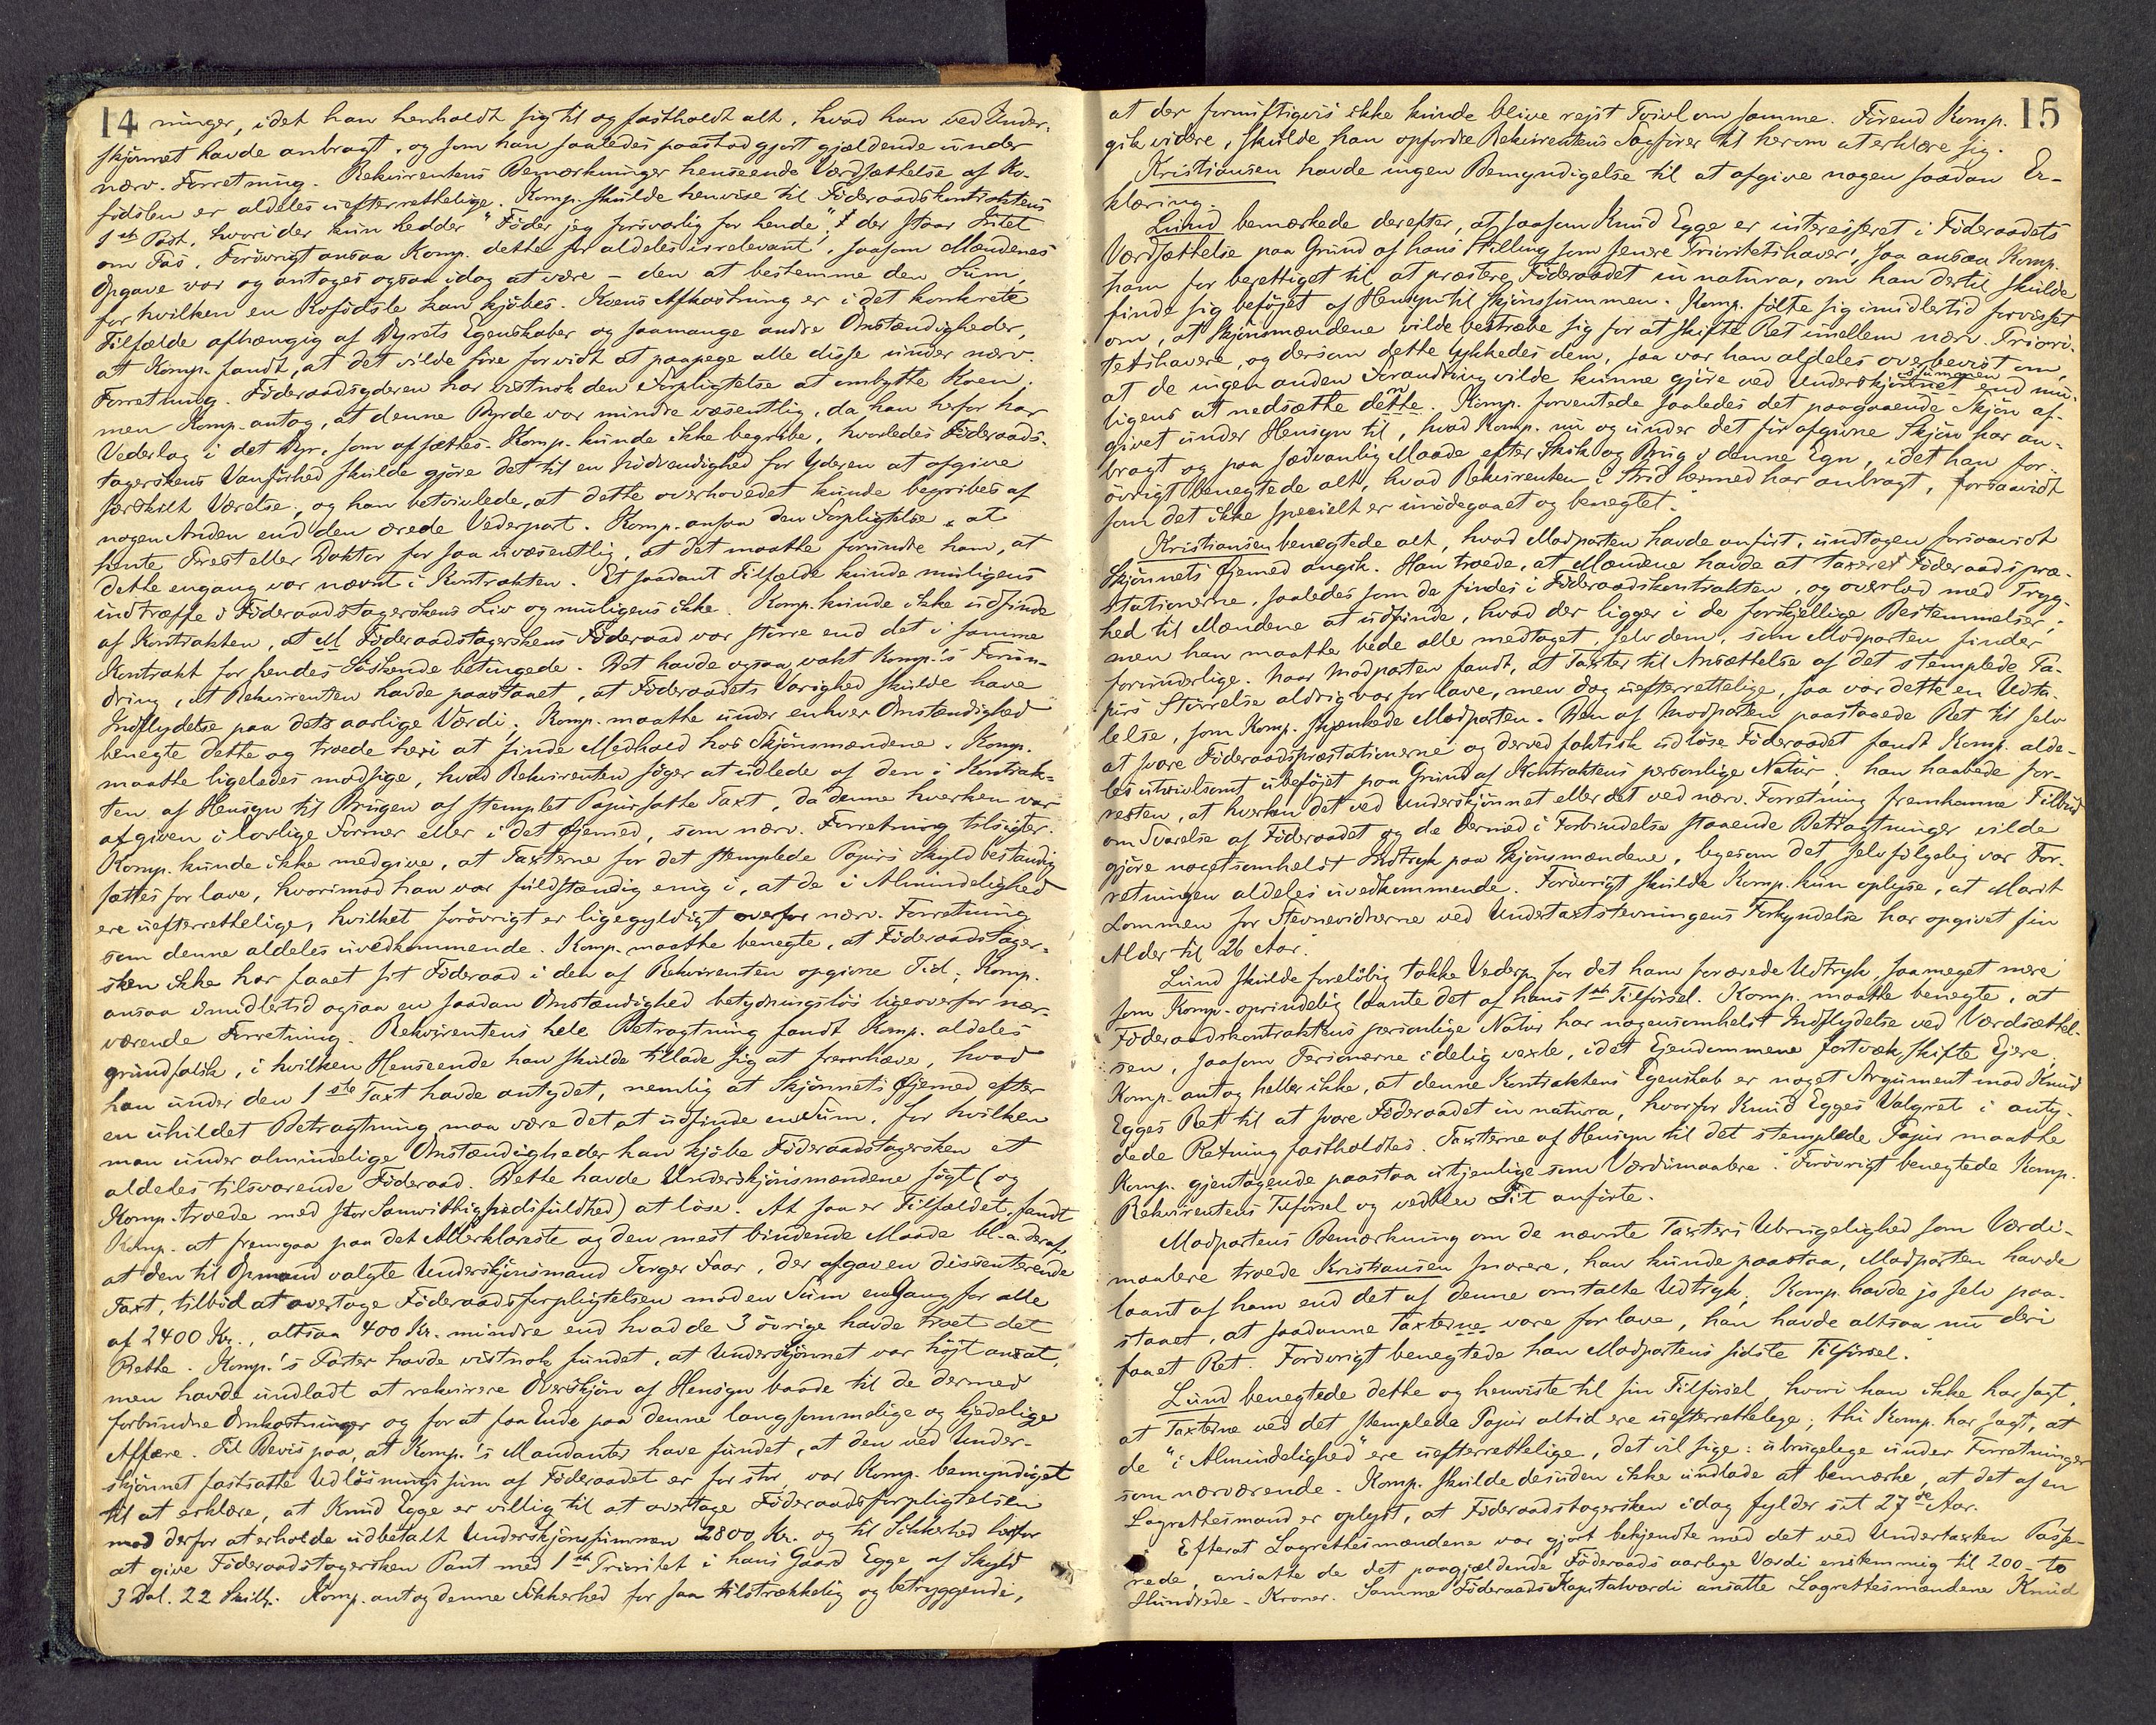 14
ninger, idet han henholdt sig til og fastholdt alt, hvad han ved Under-
skjønnet havde anbragt, og som han saaledes paastod gjort gjældende under
nærv. Forretning. Rekvirentens Bemærkninger henseende Værdsættelse af Ko-
fødslen er aldeles uefterrettelige. Komp. skulde henvise til Föderaadskontraktens
1ste Post, hvori der kun hedder "Föder jeg forsvarlig for hende", der staar Intet
om Fas. Forövrigt ansaa Komp. dette for aldeles irrelevant, saasom Mændenes
Opgave var og antages ogsaa idag at være - den at bestemme den Sum,
for hvilken en Kofödsle kan kjöbes. Koens Afkastning er i det konkrete
Tilfælde afhængig af Dyrets Egenskaber og saamange andre Omstændigheder,
at Komp. fandt, at det vilde före forvidt at paapege alle disse under nærv.
Forretning. Föderaadsyderen har vistnok den Forpligtelse at ombytte Koen,
men Komp. antog, at denne Byrde var mindre væsentlig, da han herfor har
Vederlag i det Dyr, som afsættes. Komp. kunde ikke begribe, hvorledes Föderaads-
tagerskens Vanförhed skulde gjöre det til en Nödvendighed for Yderen at afgive
særskilt Værelse, og han betvivlede, at dette overhovedet kunde begribes af
nogen Anden end den ærede Vederpart. Komp. ansaa den Forpligtelse, at
hente Prest eller Doktor for saa uvæsentlig, at det maatte forundre ham, at
dette engang var nævnt i Kontrakten. Et saadant Tilfælde kunde muligens
indtræffe i Föderaadstagerskens Liv og muligens ikke. Komp. kunde ikke udfinde
af Kontrakten, at Föderaadstagerskens Föderaad var större end det i samme
Kontrakt for hendes Söskende betingede. Det havde ogsaa vakt Komp.'s Forun-
dring, at Rekvirenten havde paastaaet, at Föderaadets Varighed skulde have
Indflydelse paa dets aarlige Værdi; Komp. maatte under enhver Omstændighed
benegte dette og troede heri at finde Medhold hos Skjönsmændene. Komp.
maatte ligeledes modsige, hvad Rekvirenten söger at udlede af den i Kontrak-
ten af Hensyn til Brugen af stemplet Papir satte Taxt, da denne hverken var
afgiven i lovlige Former eller i det Öjemed, som nærv. Forretning tilsigter.
Komp. kunde ikke medgive, at Taxterne for det stemplede Papirs Skyld bestandig
sættes for lave, hvorimod han var fuldstændig enig i, at de i Almindelighed
ere uefterrettelige, hvilket forövrigt er ligegyldigt overfor nærv. Forretning
som denne aldeles uvedkommende. Komp. maatte benegte, at Föderaadstager-
sken ikke har faaet sit Föderaad i den af Rekvirenten opgivne Tid; Komp.
ansaa imidlertid ogsaa en saadan Omstændighed betydningslös ligeoverfor nær-
værende Forretning. Rekvirentens hele Betragtning fandt Komp. aldeles
grundfalsk, i hvilken Henseende han skulde tillade sig at fremhæve, hvad
han under den 1ste Taxt havde antydet, nemlig at Skjönnets Öjemed efter
en uhildet Betragtning maa være det at udfinde en Sum, for hvilken
man under almindelige Omstændigheder kan kjöbe Föderaadstagersken et
aldeles tilsvarende Föderaad. Dette havde Underskjönsmændene sögt (og
Komp. troede med stor Samvittighedsfuldhed) at löse. At saa er Tilfældet, fandt
Komp. at fremgaa paa det Allerklareste og den mest bindende Maade bl.a. deraf,
at den til Opmand valgte Underskjönsmand Torger Faar, der afgav en dissenterende
Taxt, tilböd at overtage Föderaadsforpligtelsen mod en Sum en Gang for alle
af 2400 Kr., altsaa 400 Kr. mindre end hvad de 3 övrige havde troet det
Rette. Komp.'s Parter havde vistnok fundet, at Underskjönnet var höjt ansat,
men havde undladt at rekvirere Overskjön af Hensyn baade til de dermed
forbundne Omkostninger og for at faa Ende paa denne langsommelige og kjedelige
Affære. Til Bevis paa, at Komp.'s Mandanter have fundet, at den ved Under-
skjönnet fastsatte Udlösningssum af Föderaadet er for stor var Komp. bemyndiget
til at erklære, at Knud Egge er villig til at overtage Föderaadsforpligtelsen
mod derfor at erholde udbetalt Underskjönssummen 2800 Kr. og til Sikkerhed herfor
at give Föderaadstagersken Pant med 1ste Prioritet i hans Gaard Egge af Skyld
3 Dal. 22 Skill. Komp. antog denne Sikkerhed for saa tilstrækkelig og betryggende,
15
at der fornuftigvis ikke kunde blive rejst Tvivl om samme. Förend Komp.
gik videre, skulde han opfordre Rekvirentens Sagförer til herom at erklære sig.
Kristiansen havde ingen Bemyndigelse til at afgive nogen saadan Er-
klæring.
Lund bemærkede derefter, at saasom Knud Egge er interesseret i Föderaadets
Værdsættelse paa Grund af hans Stilling som senere Prioritetshaver, saa ansaa Komp.
ham for berettiget til at præstere Föderaadet in natura, om han dertil skulde
finde sig beföjet af Hensyn til Skjönssummen. Komp. fölte sig imidlertid forvisset
om, at Skjönsmændene vilde bestræbe sig for at skifte Ret imellem nærv. Priori-
tetshavere, og dersom dette lykkedes dem, saa var han aldeles overbevist om,
at de ingen anden Forandring vilde kunne gjöre ved Underskjönssummen end mu-
ligens at nedsætte denne. Komp. forventede saaledes det paagaaende Skjön af-
givet under Hensyn til, hvad Komp. nu og under det för afgivne Skjön har an-
bragt og paa sædvanlig Maade efter Skik og Brug i denne Egn, idet han for-
övrigt benegtede alt, hvad Rekvirenten i Strid hermed har anbragt, forsaavidt
som det ikke specielt er imödegaaet og benegtet.
Kristiansen benegtede alt, hvad Modparten havde anfört, undtagen forsaavidt
Skjönnets Öjemed angik. Han troede, at Mændene havde at taxeret Föderaadspræ-
stationerne, saaledes som de findes i Föderaadskontrakten, og overlod med Tryg-
hed til Mændene at udfinde, hvad der ligger i de forskjellige Bestemmelser;
men han maatte bede alle medtaget, selv dem, som Modparten finder
forunderlige. Naar Modparten fandt, at Taxter til Ansættelse af det stemplede Pa-
pirs Störrelse aldrig var for lave, men dog uefterrettelige, saa var dette en Udta-
lelse, som Komp. skjænkede Modparten. Den af Modparten paastaaede Ret til selv
at svare Föderaadspræstationerne og derved faktisk udlöse Föderaadet fandt Komp. alde-
les utvivlsomt ubeföjet paa Grund af Kontraktens personlige Natur; han haabede for-
resten, at hverken det ved Underskjönnet eller det ved nærv. Forretning fremkomne Tilbud
om Svarelse af Föderaadet og de dermed i Forbindelse staaende Betragtninger vilde
gjöre nogetsomhelst Indtryk paa Skjönsmændene, ligesom det selvfölgelig var For-
retningen aldeles uvedkommende. Forövrigt skulde Komp. kun oplyse, at Marit
Lommen for Stevnevidnerne ved Undertaxtstevningens Forkyndelse har opgivet sin
Alder til 26 Aar.
Lund skulde foreløbig takke Vederp. for det ham forærede Udtryk, saameget mere
som Komp. oprindelig laante det af hans 1ste Tilförsel. Komp. maatte benegte, at
Föderaadskontraktens personlige Natur har nogensomhelst Indflydelse ved Værdsættel-
sen, saasom Personerne idelig vexle, idet Ejendommene fortvæk skifte Ejere.
Komp. antog heller ikke, at denne Kontraktens Egenskab er noget Argument mod Knud
Egges Ret til at svare Föderaadet in natura, hvorfor Knud Egges Valgret i anty-
dede Retning fastholdtes. Taxterne af Hensyn til det stemplede Papir maatte
Komp. gjentagende paastaa utjenlige som Værdimaalere. Forövrigt benegtede Komp.
Rekvirentens Tilförsel og vedblev Sit anförte.
Modpartens Bemærkning om de nævnte Taxters Ubrugelighed som Værdi-
maalere troede Kristiansen snarere, han kunde paastaa, Modparten havde
laant af ham end det af denne omtalte Udtryk. Komp. havde jo selv paa-
staaet, at saadanne Taxterne vare for lave, han havde altsaa nu deri
faaet Ret. Forövrigt benegtede han Modpartens sidste Tilförsel.
Lund benegtede dette og henviste til sin Tilförsel, hvori han ikke har sagt,
at Taxterne ved det stemplede Papir altid ere uefterrettelege; thi Komp. har sagt, at
de "i Almindelighed" ere uefterrettelige, det vil sige: ubrugelege under Forretninger
som nærværende. Komp. skulde desuden ikke undlade at bemærke, at det af en
Lagrettesmand er oplyst, at Föderaadstagersken idag fylder sit 27de Aar.
Efterat Lagrettesmændene var gjort bekjendte med det ved Undertaxten Passe-
rede, ansatte de det paagjældende Föderaads aarlege Værdi enstemmig til 200 - to
Hundrede - Kroner. Samme Föderaads Kapitalværdi ansatte Lagrettesmændene Knud